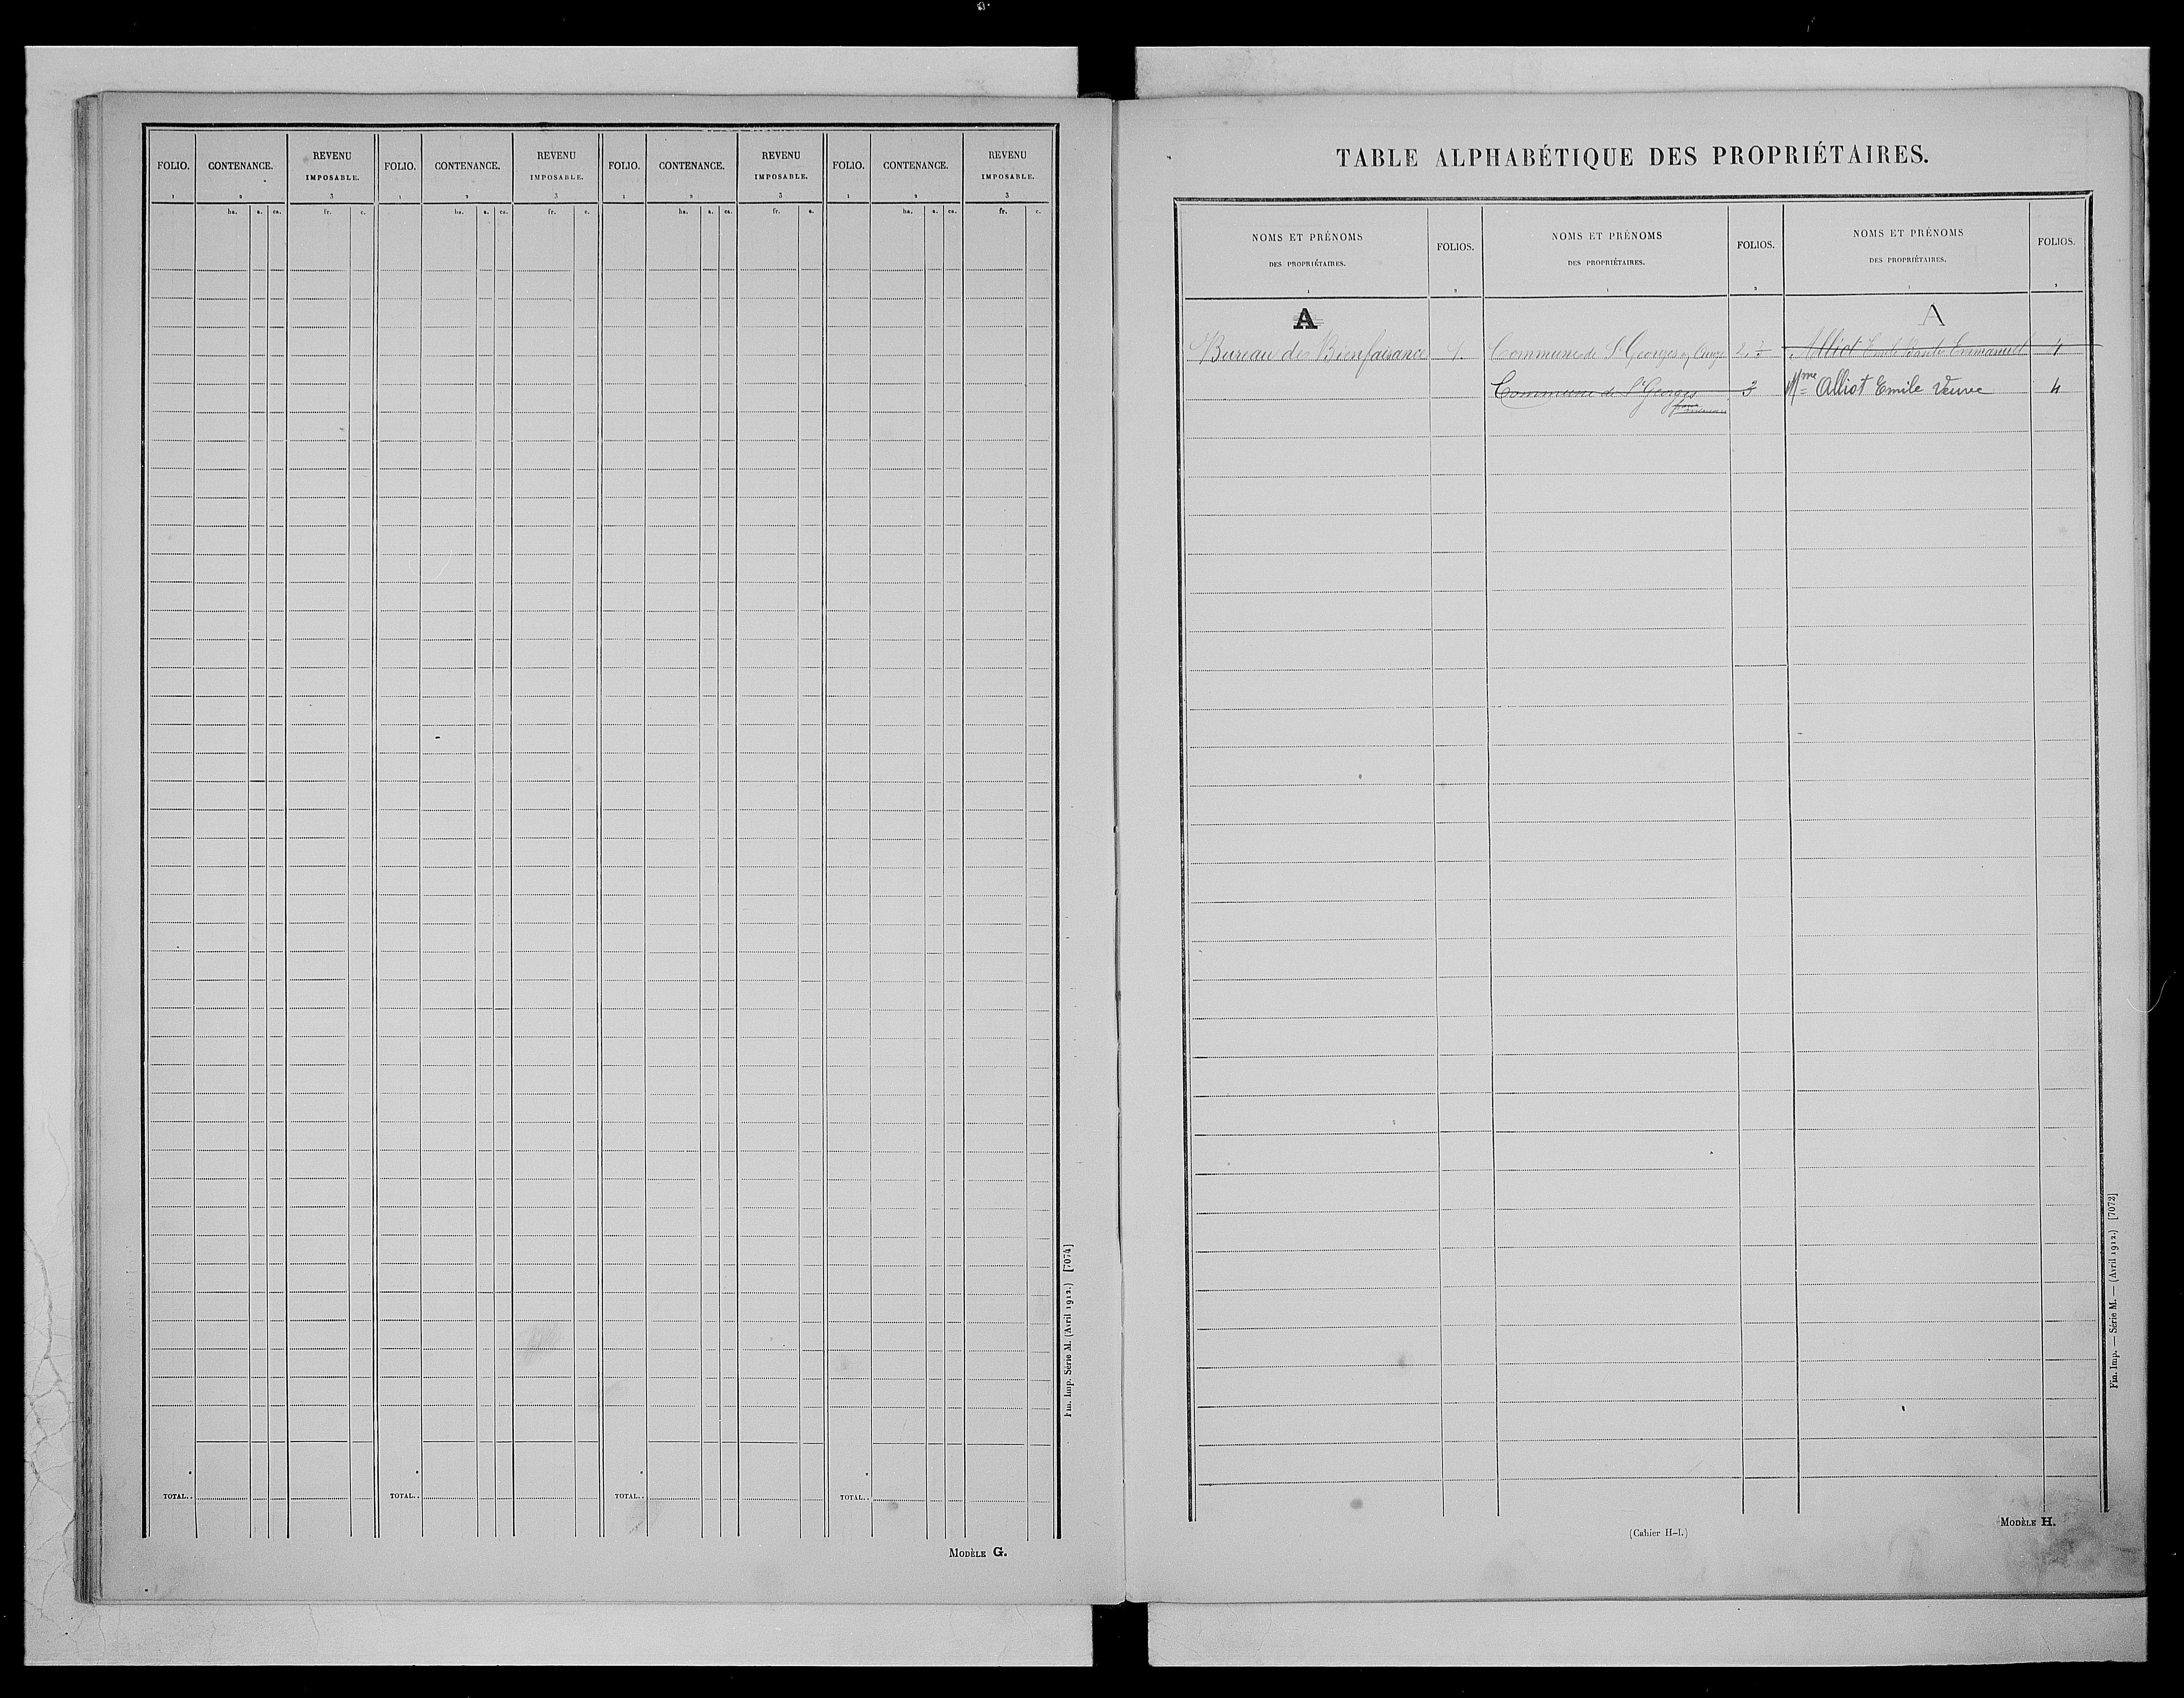 FOLIO. CONTENANCE. REVENU IMPOSABLE. FOLIO. CONTENANCE. REVENU IMPOSABLE. FOLIO. CONTENANCE. REVENU IMPOSABLE. FOLIO. CONTENANCE. REVENU IMPOSABLE.
1 2 3 1 2 3 1 2 3 1 2 3
ha. a. ca. fr. c. ha. a. ca. fr. c. ha. a. ca. fr. c. ha. a. ca. fr. c.
TOTAL.. TOTAL.. TOTAL.. TOTAL..
Fin. Imp. Série M. (Avril 1912.) [7074]
MODÈLE G.
TABLE ALPHABÉTIQUE DES PROPRIÉTAIRES.
NOMS ET PRÉNOMS DES PROPRIÉTAIRES. FOLIOS. NOMS ET PRÉNOMS DES PROPRIÉTAIRES. FOLIOS. NOMS ET PRÉNOMS DES PROPRIÉTAIRES. FOLIOS.
1 2 1 2 1 2
A A
Bureau de Bienfaisance 1. Commune de St Georges 2. Alliot Emile Emmanuel 4
Commune de St Georges 3 Mme Alliot Emile Veuve 4
Fin. Imp. — Série M. — (Avril 1912.) [7072]
(Cahier H-I.)
MODÈLE H.